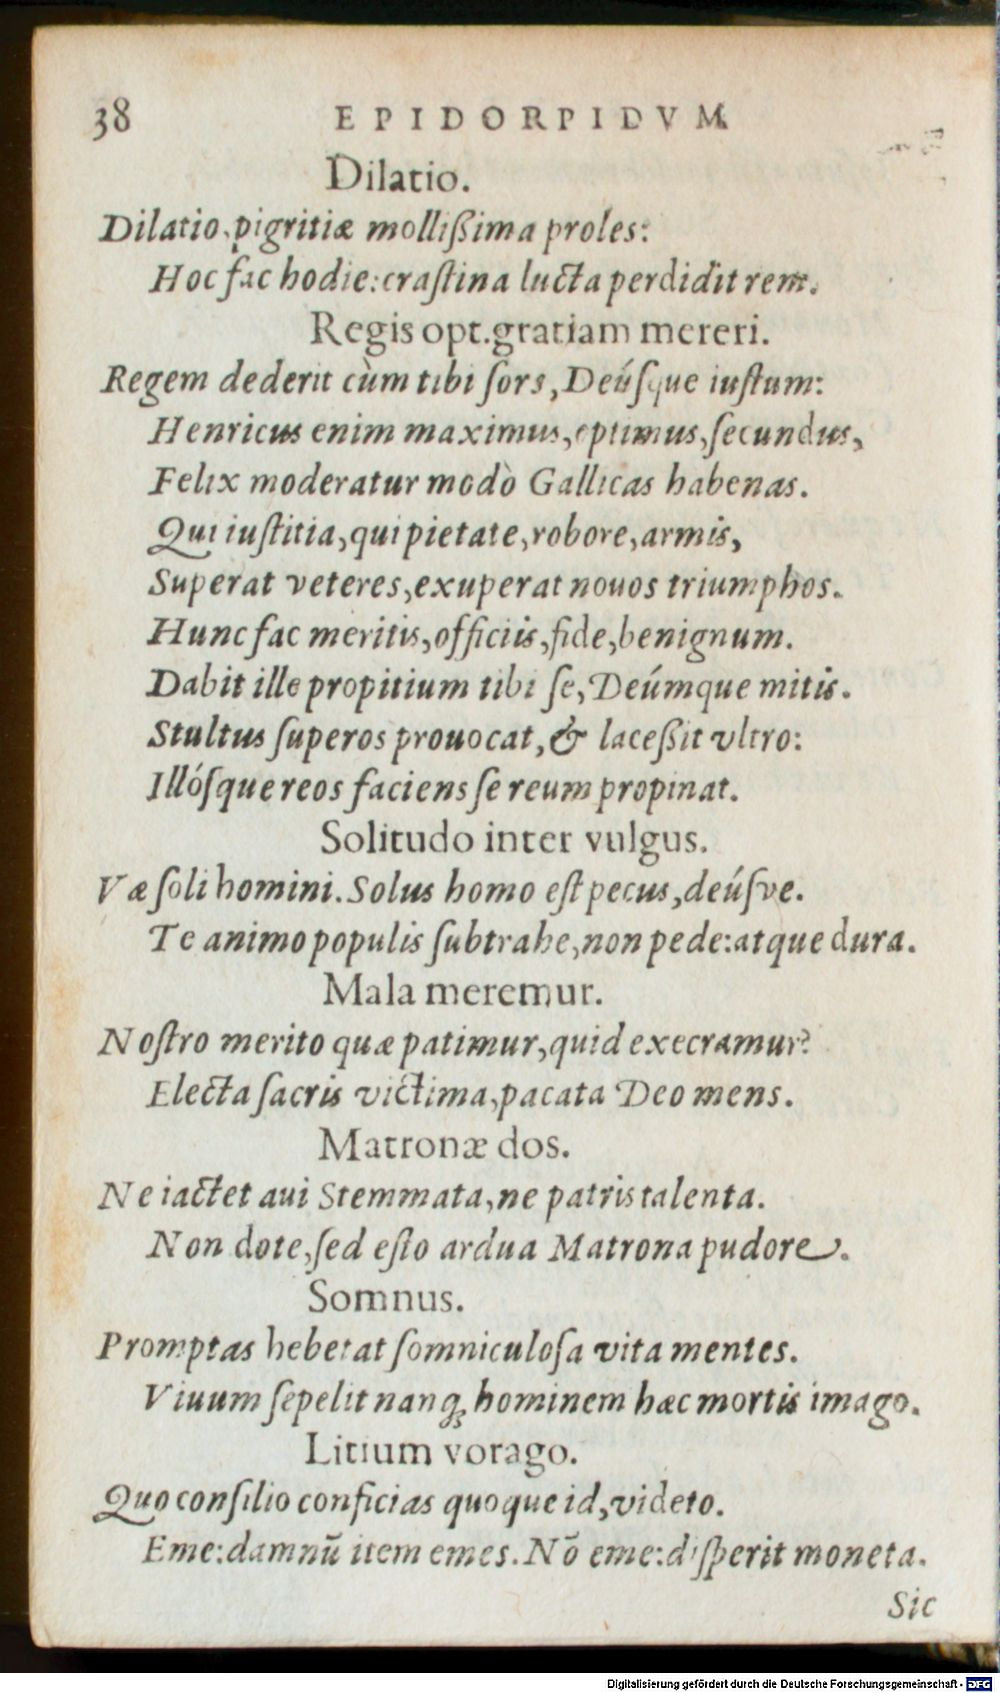 38 EPIDORPIDVM
Dilatio.
Dilatio, pigritiæ mollißima proles:
Hoc fac hodie: craſtina lucta perdidit rem.
Regis opt. gratiam mereri.
Regem dederit cùm tibi ſors, Deúſque iuſtum:
Henricus enim maximus, optimus, ſecundus,
Felix moderatur modò Gallicas habenas.
Qui iuſtitia, qui pietate, robore, armis,
Superat veteres, exuperat nouos triumphos.
Hunc fac meritis, officiis, fide, benignum.
Dabit ille propitium tibi ſe, Deúmque mitis.
Stultus ſuperos prouocat, & laceßit vltro:
Illóſque reos faciens ſe reum propinat.
Solitudo inter vulgus.
Væ ſoli homini. Solus homo eſt pecus, deúſve.
Te animo populis ſubtrahe, non pede: atque dura.
Mala meremur.
Noſtro merito quæ patimur, quid execramur?
Electa ſacris victima, pacata Deo mens.
Matronæ dos.
Ne iactet aui Stemmata, ne patris talenta.
Non dote, ſed eſto ardua Matrona pudore.
Somnus.
Promptas hebetat ſomniculoſa vita mentes.
Viuum ſepelit nanq; hominem hæc mortis imago.
Litium vorago.
Quo conſilio conficias quoque id, videto.
Eme: damnū item emes. Nō eme: diſperit moneta.
Sic
Digitalisierung gefördert durch die Deutsche Forschungsgemeinschaft - DFG